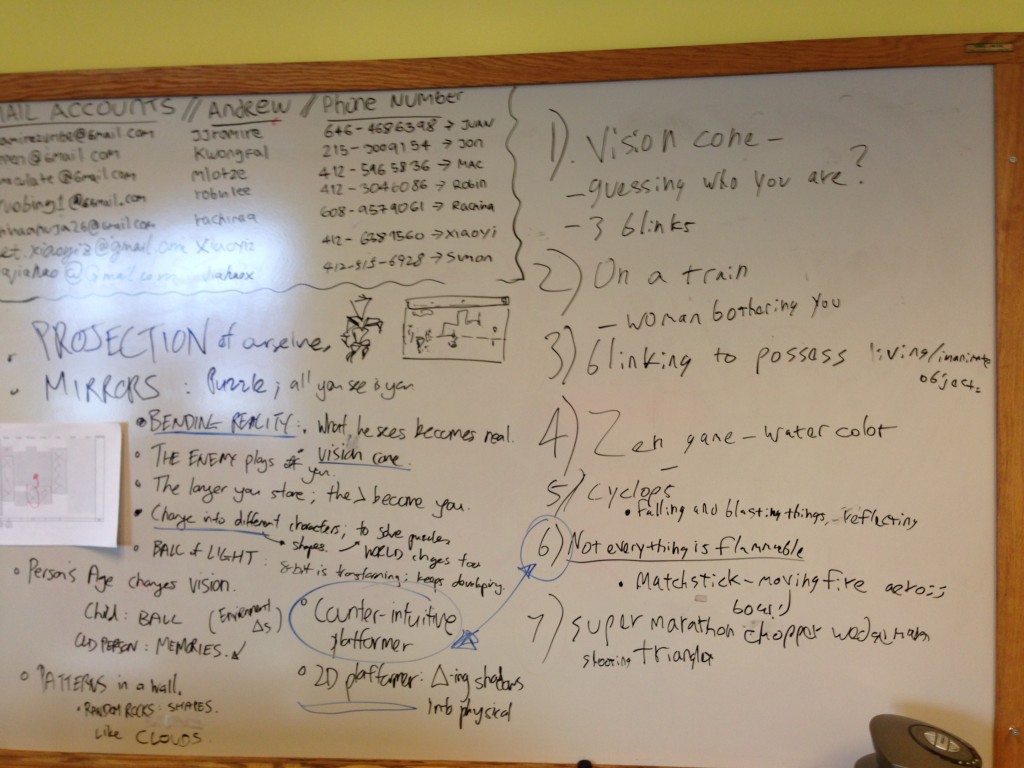 MAIL ACCOUNTS // Andrew / Phone Number
amirezuribe@Gmail.com JJromire 646-4686398 → JUAN
@Gmail.com Kwongfal 215-3009154 → Jon
@Gmail.com Mlotze 412-596 5836 → MAC
@Gmail.com robinlee 412-3046086 → Robin
@Gmail.com rachinaa 608-9579061 → Rachina
et.xiaoyiz@gmail.com Xiaoyiz 412-6389560 → Xiaoyi
@Gmail.com 412-515-6928 → Simon
• PROJECTION of ourselves
• MIRRORS : Puzzle; all you see is you
• BENDING REALITY:, what he sees becomes real.
• THE ENEMY plays off your vision cone.
• The longer you stare; the > become you.
• Change into different characters; to solve puzzles
shapes. → WORLD changes too
• BALL of LIGHT : 8-bit is transforming: keeps developing.
• Person's Age changes vision.
Child: BALL (Environment Δs)
OLD PERSON : MEMORIES.
• PATTERNS in a wall.
• RANDOM ROCKS: SHAPES.
Like CLOUDS.
• Counter-intuitive
platformer
• 2D platformer: Δ-ing shadows
into physical
1). Vision cone -
- guessing who you are?
- 3 blinks
2) On a train
- woman bothering you
3) blinking to possess living/inanimate
objects
4) Zen game - water color
5) Cyclops
• falling and blasting things, - reflecting
6) Not everything is flammable
• Matchstick - moving fire across
board
7) super marathon chopper
shooting triangles